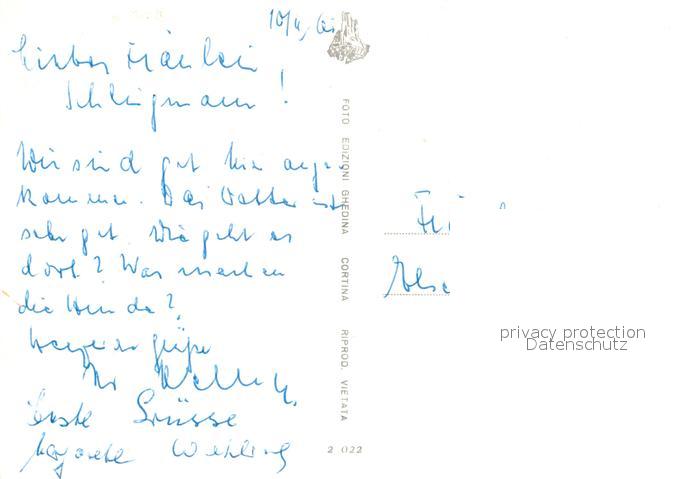 Liebes Fräulein
Schlingmann!
Wir sind gut hier ange-
kommen. Das Wetter ist
sehr gut. Wie geht es
dort? Was machen
die Hunde?
grüße
Ihr
beste Grüsse
FOTO EDIZIONI GHEDINA CORTINA RIPROD. VIETATA
2 022
privacy protection
Datenschutz